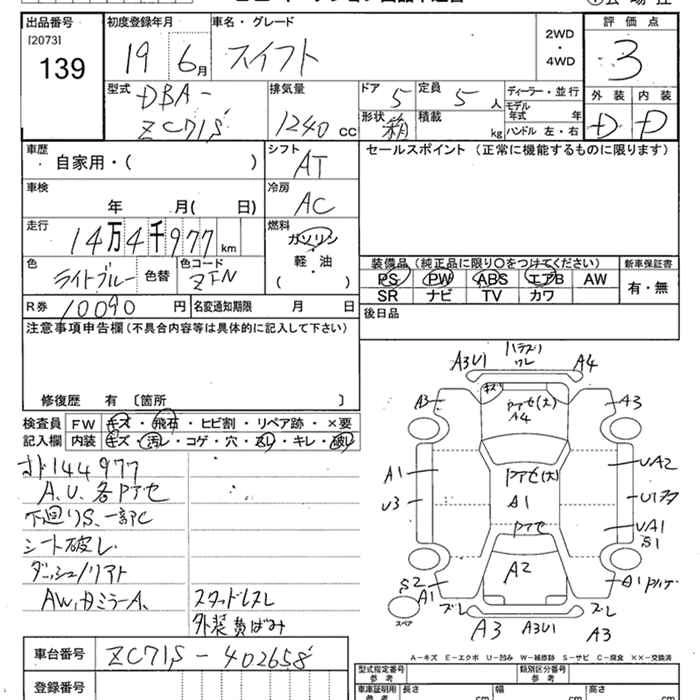 出品番号
[2073]
139
初度登録年月
19 6月
車名・グレード
スイフト
2WD
・
4WD
評価点
3
外装 内装
D D
型式
DBA-
ZC71S
排気量
1240 CC
ドア 5
定員 5 人
形状 箱
積載 kg
ディーラー・並行
モデル年式 年
ハンドル 左・右
車歴
自家用・( )
シフト
AT
セールスポイント (正常に機能するものに限ります)
車検
年 月( 日)
冷房
AC
走行
14万4千977km
燃料
ガソリン
・
軽・油
( )
色
ライトブルー
色替
色コード
ZFN
装備品 (純正品に限り〇をつけてください)
PS PW ABS エアB AW
SR ナビ TV カワ
新車保証書
有・無
R券 10090 円
名変通知期限 月 日
後日品
注意事項申告欄 (不具合内容等は具体的に記入して下さい)
修復歴 有 〔箇所 〕
検査員記入欄
FW キズ・飛石・ヒビ割・リペア跡・×要
内装 キズ・汚レ・コゲ・穴・スレ・キレ・破レ
144977
A.U.各Pアセ
下廻りS、一部C
シート破レ
ダッシュノリアト
AW、カミラーA、
スタッドレスレ
外装黄ばみ
A3U1
A4
A3
A3
キズ
Pアセ(大)
A4
A1
U3
Pアセ(大)
A1
Pアセ
A2
UA2
UA1
S1
S2
A1
ズレ
ズレ
A3
A3U1
A3
スペア
A-キズ E-エクボ U-凹み W-補修跡 S-サビ C-腐食 XX-交換済
車台番号 ZC71S-402658
登録番号
型式指定番号
参考
類別区分番号
参考
車庫証明用
参考
長さ cm
幅 cm
高さ cm